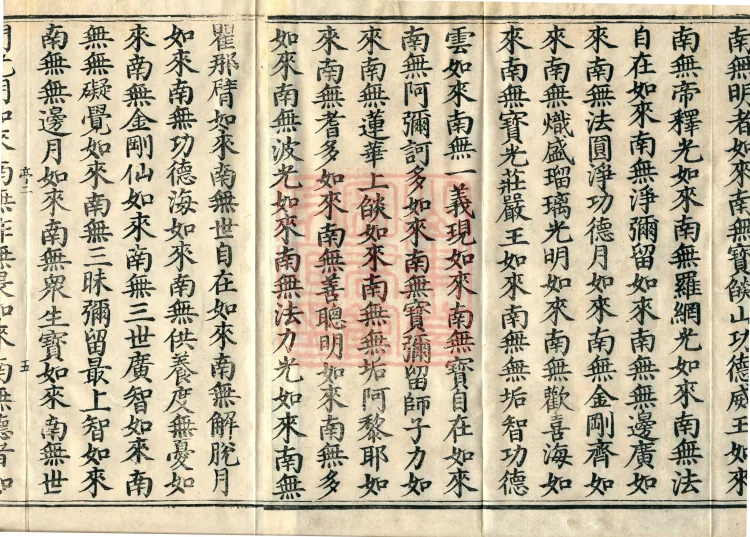 南無明者如來南無寶𦦨山功德威王如來
南無帝釋光如來南無羅網光如來南無法
自在如來南無淨彌留如來南無無邊廣如
來南無法圓淨功德月如來南無金剛齊如
來南無熾盛瑠璃光明如來南無歡喜海如
來南無寶光莊嚴王如來南無無垢智功德
雲如來南無一義現如來南無寶自在如來
南無阿彌訶多如來南無寶彌留師子力如
來南無蓮華上𦦨如來南無無垢阿黎耶如
來南無者多如來南無善聰明如來南無多
如來南無波光如來南無法力光如來南無
瞿那臂如來南無世自在如來南無解脫月
如來南無功德海如來南無供養度無憂如
來南無金剛仙如來南無三世廣智如來南
無無礙覺如來南無三昧彌留最上智如來
南無無邊月如來南無衆生寶如來南無世
亭二 五